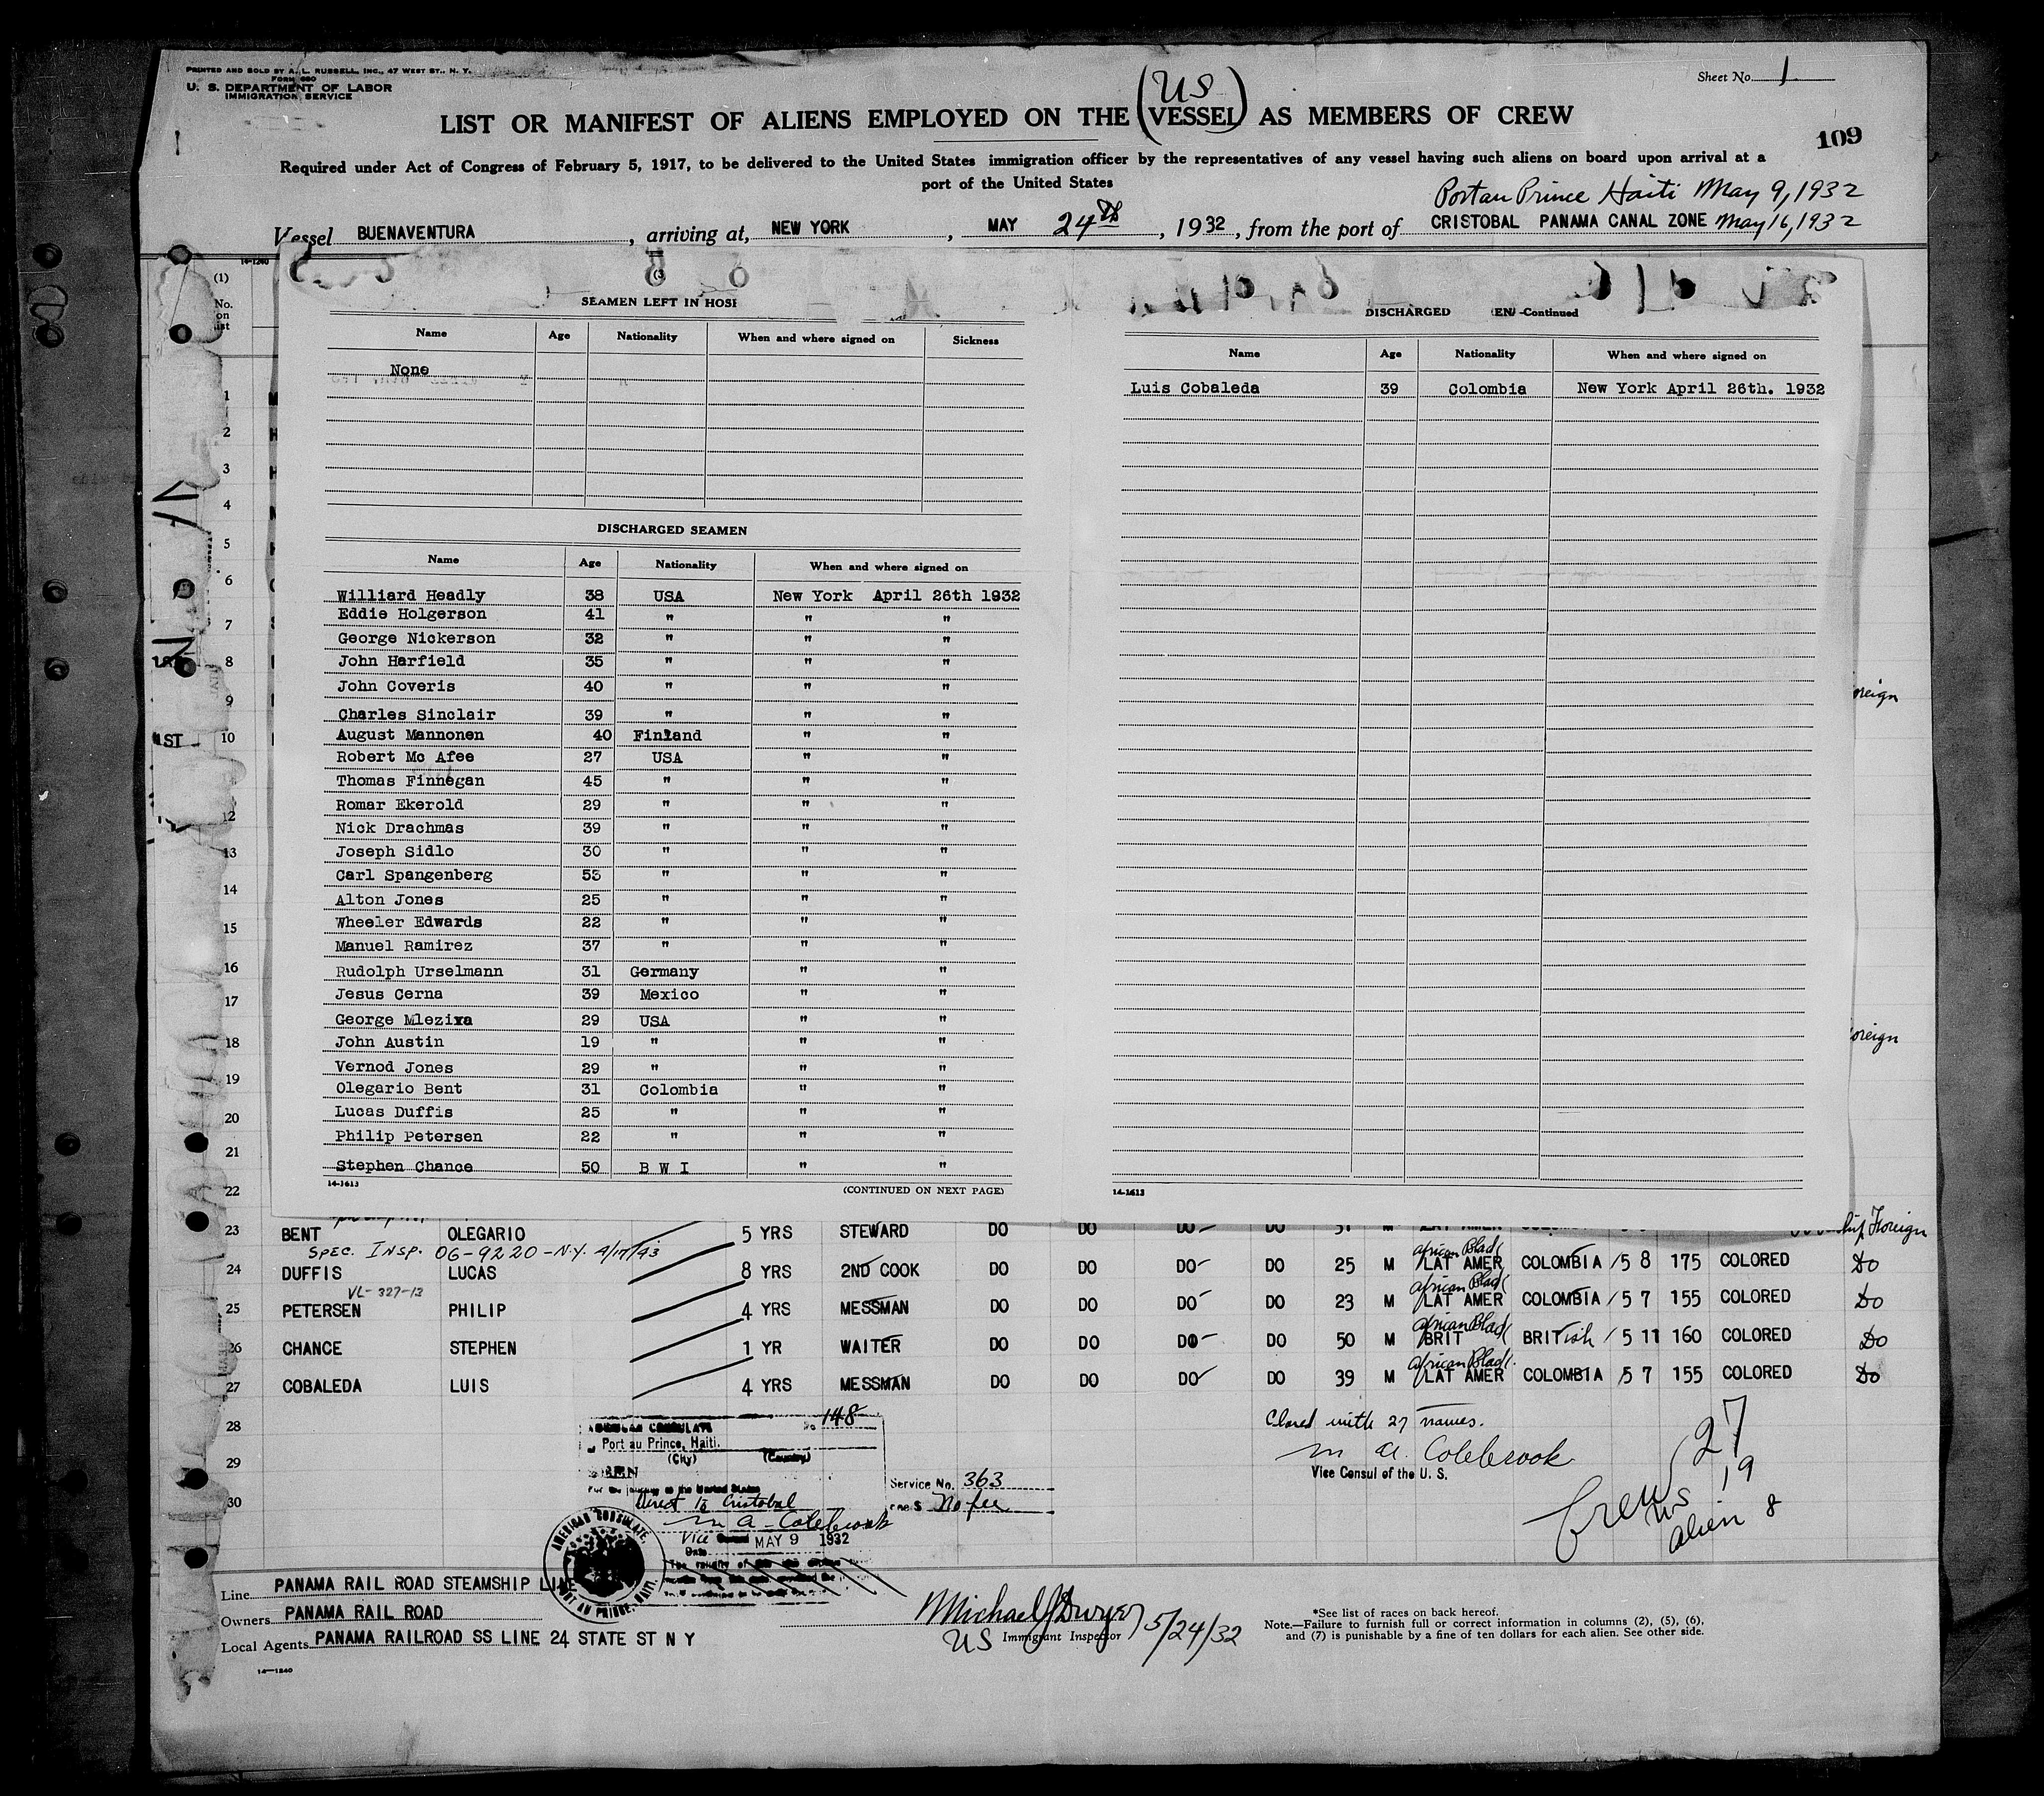 PRINTED AND SOLD BY A. L. RUSSELL, INC., 47 WEST ST., N. Y.
FORM 680
U. S. DEPARTMENT OF LABOR
IMMIGRATION SERVICE
Sheet No. 1
US
LIST OR MANIFEST OF ALIENS EMPLOYED ON THE (VESSEL) AS MEMBERS OF CREW
109
Required under Act of Congress of February 5, 1917, to be delivered to the United States immigration officer by the representatives of any vessel having such aliens on board upon arrival at a
port of the United States
Port au Prince Haiti May 9, 1932
Vessel BUENAVENTURA, arriving at, NEW YORK, MAY 24th, 1932, from the port of CRISTOBAL PANAMA CANAL ZONE May 16, 1932
14-1240
(1)
No. on list
SEAMEN LEFT IN HOSI
Name Age Nationality When and where signed on Sickness
None
DISCHARGED SEAMEN
Name Age Nationality When and where signed on
Williard Headly 38 USA New York April 26th 1932
Eddie Holgerson 41 " " "
George Nickerson 32 " " "
John Harfield 35 " " "
John Coveris 40 " " "
Charles Sinclair 39 " " "
August Mannonen 40 Finland " "
Robert Mc Afee 27 USA " "
Thomas Finnegan 45 " " "
Romar Ekerold 29 " " "
Nick Drachmas 39 " " "
Joseph Sidlo 30 " " "
Carl Spangenberg 53 " " "
Alton Jones 25 " " "
Wheeler Edwards 22 " " "
Manuel Ramirez 37 " " "
Rudolph Urselmann 31 Germany " "
Jesus Cerna 39 Mexico " "
George Mleziva 29 USA " "
John Austin 19 " " "
Vernod Jones 29 " " "
Olegario Bent 31 Colombia " "
Lucas Duffis 25 " " "
Philip Petersen 22 " " "
Stephen Chance 50 B W I " "
14-1613
(CONTINUED ON NEXT PAGE)
DISCHARGED EN -Continued
Name Age Nationality When and where signed on
Luis Cobaleda 39 Colombia New York April 26th. 1932
14-1613
1
2
3
4
5
6
7
8
9
10
12
13
14
15
16
17
18
19
20
21
22
oreign
oreign
23 BENT OLEGARIO 5 YRS STEWARD DO DO DO DO 31 M LAT AMER Foreign
SPEC. INSP. 06-9220-N.Y.
24 DUFFIS LUCAS 8 YRS 2ND COOK DO DO DO DO 25 M African Black LAT AMER COLOMBIA 5 8 175 COLORED Do
VL-327-13
25 PETERSEN PHILIP 4 YRS MESSMAN DO DO DO DO 23 M African Black LAT AMER COLOMBIA 5 7 155 COLORED Do
26 CHANCE STEPHEN 1 YR WAITER DO DO DO DO 50 M African Black BRIT BRITish 5 11 160 COLORED Do
27 COBALEDA LUIS 4 YRS MESSMAN DO DO DO DO 39 M African Black LAT AMER COLOMBIA 5 7 155 COLORED Do
28
29
30
AMERICAN CONSULATE No 148
Port au Prince, Haiti.
(City) (Country)
SEEN
For the journey to the United States
Direct to Cristobal
M A Colebrook
Vice Consul
Date MAY 9 1932
Service No. 363
Fee $ No fee
AMERICAN CONSULATE. PORT AU PRINCE, HAITI.
Closed with 27 names.
M A Colebrook
Vice Consul of the U. S.
Crew 27
US 19
alien 8
Line PANAMA RAIL ROAD STEAMSHIP LINE
Owners PANAMA RAIL ROAD
Local Agents PANAMA RAILROAD SS LINE 24 STATE ST N Y
14-1240
Michael J Dwyer 5/24/32
US Immigrant Inspector
*See list of races on back hereof.
Note.—Failure to furnish full or correct information in columns (2), (5), (6),
and (7) is punishable by a fine of ten dollars for each alien. See other side.